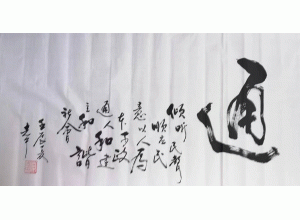 通
倾听民声
顺应民
意以人为
本下政
通人和建
立和谐
社会